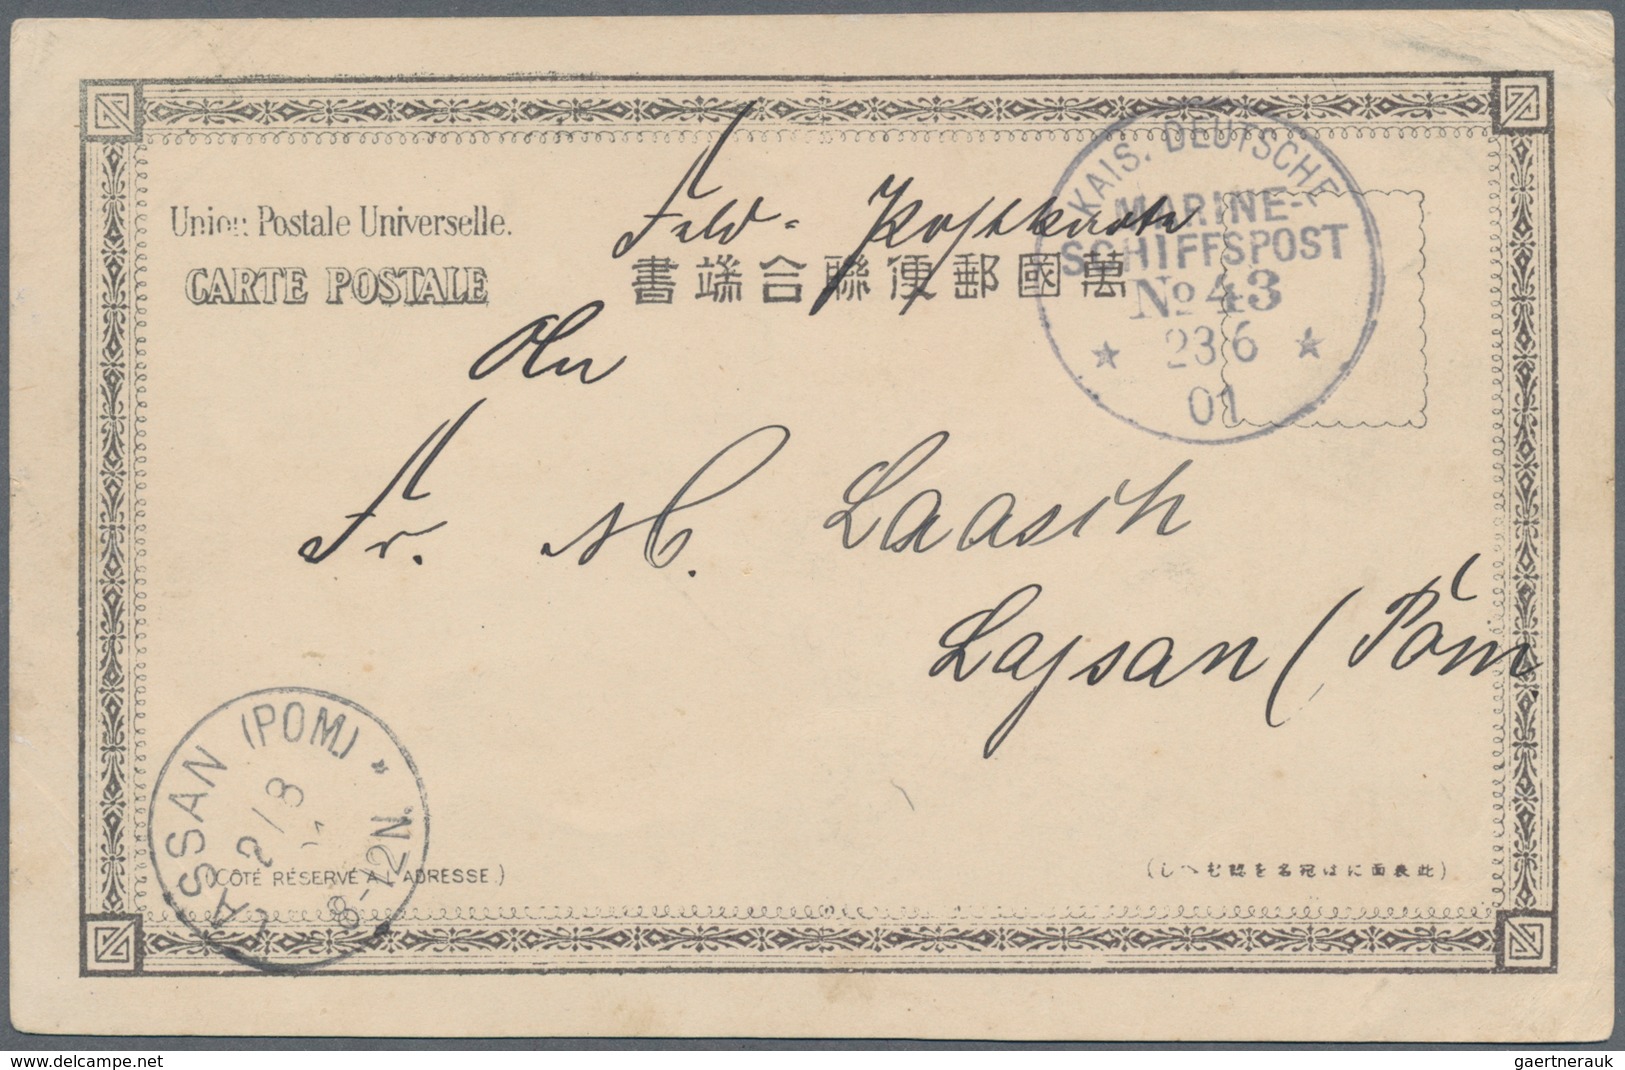 Union Postale Universelle.
CARTE POSTALE
Feld-Postkarte
書端合聯便郵國萬
KAIS. DEUTSCHE
MARINE-
SCHIFFSPOST
No 43
23 6
01
An
Fr. M. Laasch
Lassan (Pom
LASSAN (POM.)
2/8
8-12N.
(CÔTÉ RÉSERVÉ A L'ADRESSE.)
(しへむ認を名宛はに面表此)
the.delcampe.net
gaertnerauk